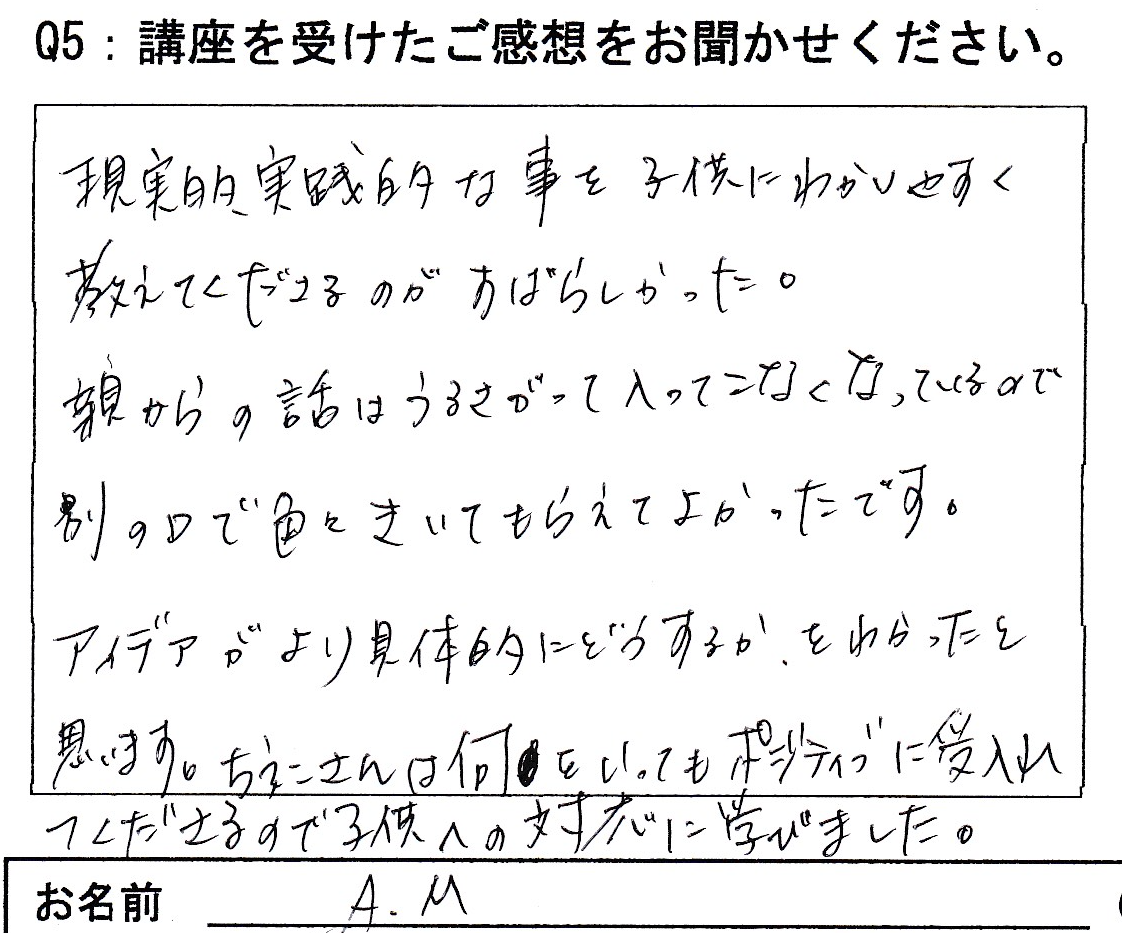 Q5：講座を受けたご感想をお聞かせください。
現実的、実践的な事を子供にわかりやすく
教えてくださるのがすばらしかった。
親からの話はうるさがって入ってこなくなっているので
別の口で色々きいてもらえてよかったです。
アイデアがより具体的にどうするか、をわかったと
思います。ちえこさんは何をいってもポジティブに受入れ
てくださるので子供への対応に学びました。
お名前 A.M